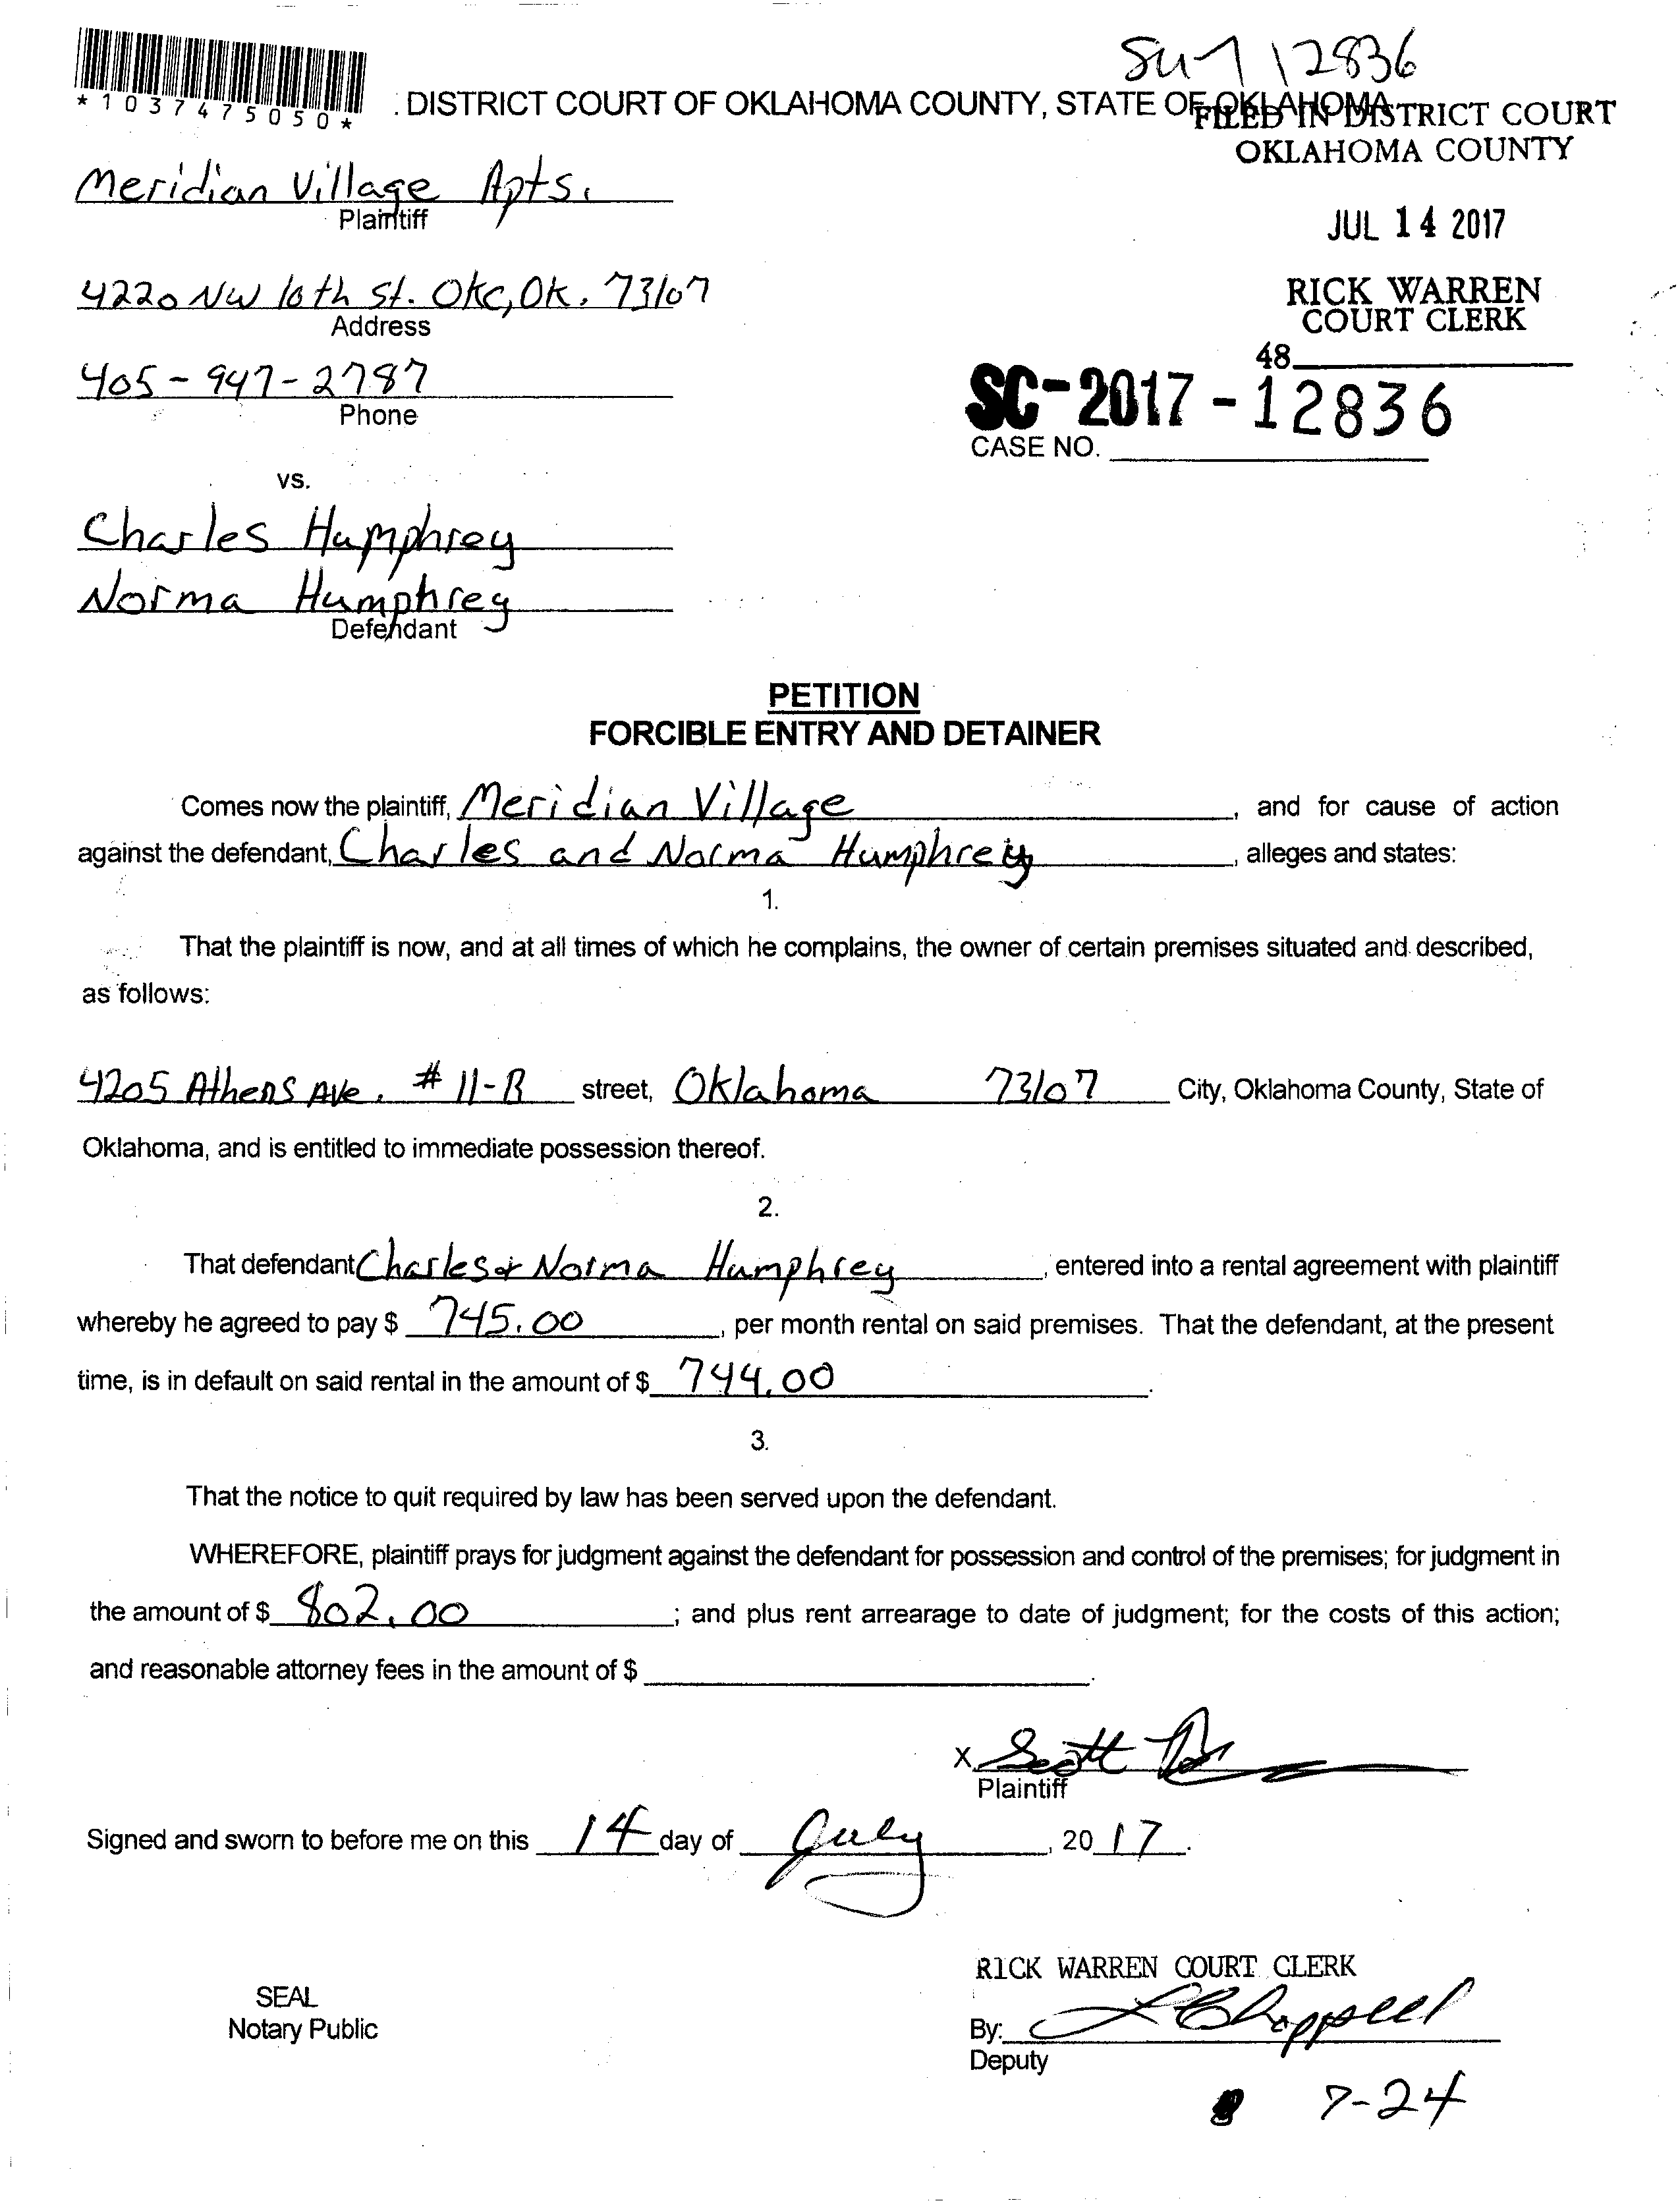 SM 12836
*1037475050*
. DISTRICT COURT OF OKLAHOMA COUNTY, STATE OF OKLAHOMA
FILED IN DISTRICT COURT
OKLAHOMA COUNTY
Meridian Village Apts.
Plaintiff
JUL 14 2017
4220 NW 10th St. OKC, OK. 73107
Address
RICK WARREN
COURT CLERK
405-947-2787
Phone
48
SC-2017-12836
CASE NO.
vs.
Charles Humphrey
Norma Humphrey
Defendant
PETITION
FORCIBLE ENTRY AND DETAINER
Comes now the plaintiff, Meridian Village, and for cause of action
against the defendant, Charles and Norma Humphrey, alleges and states:
1.
That the plaintiff is now, and at all times of which he complains, the owner of certain premises situated and described,
as follows:
4205 Athens Ave. # 11-B street, Oklahoma 73107 City, Oklahoma County, State of
Oklahoma, and is entitled to immediate possession thereof.
2.
That defendant Charles & Norma Humphrey, entered into a rental agreement with plaintiff
whereby he agreed to pay $ 745.00, per month rental on said premises. That the defendant, at the present
time, is in default on said rental in the amount of $ 744.00.
3.
That the notice to quit required by law has been served upon the defendant.
WHEREFORE, plaintiff prays for judgment against the defendant for possession and control of the premises; for judgment in
the amount of $ 802.00; and plus rent arrearage to date of judgment; for the costs of this action;
and reasonable attorney fees in the amount of $ .
X Scott
Plaintiff
Signed and sworn to before me on this 14 day of July, 20 17.
RICK WARREN COURT CLERK
SEAL
Notary Public
By: L Chappell
Deputy
7-24